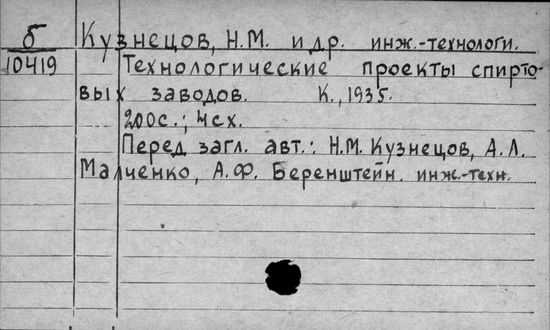 б Кузнецов, Н.М. и др. инж.-технологи.
10419 Технологические проекты спирто-
вых заводов. К., 1935.
200с.; 4сх.
Перед загл. авт.: Н.М. Кузнецов, А.Л.
Малченко, А.Ф. Беренштейн. инж.-техн.